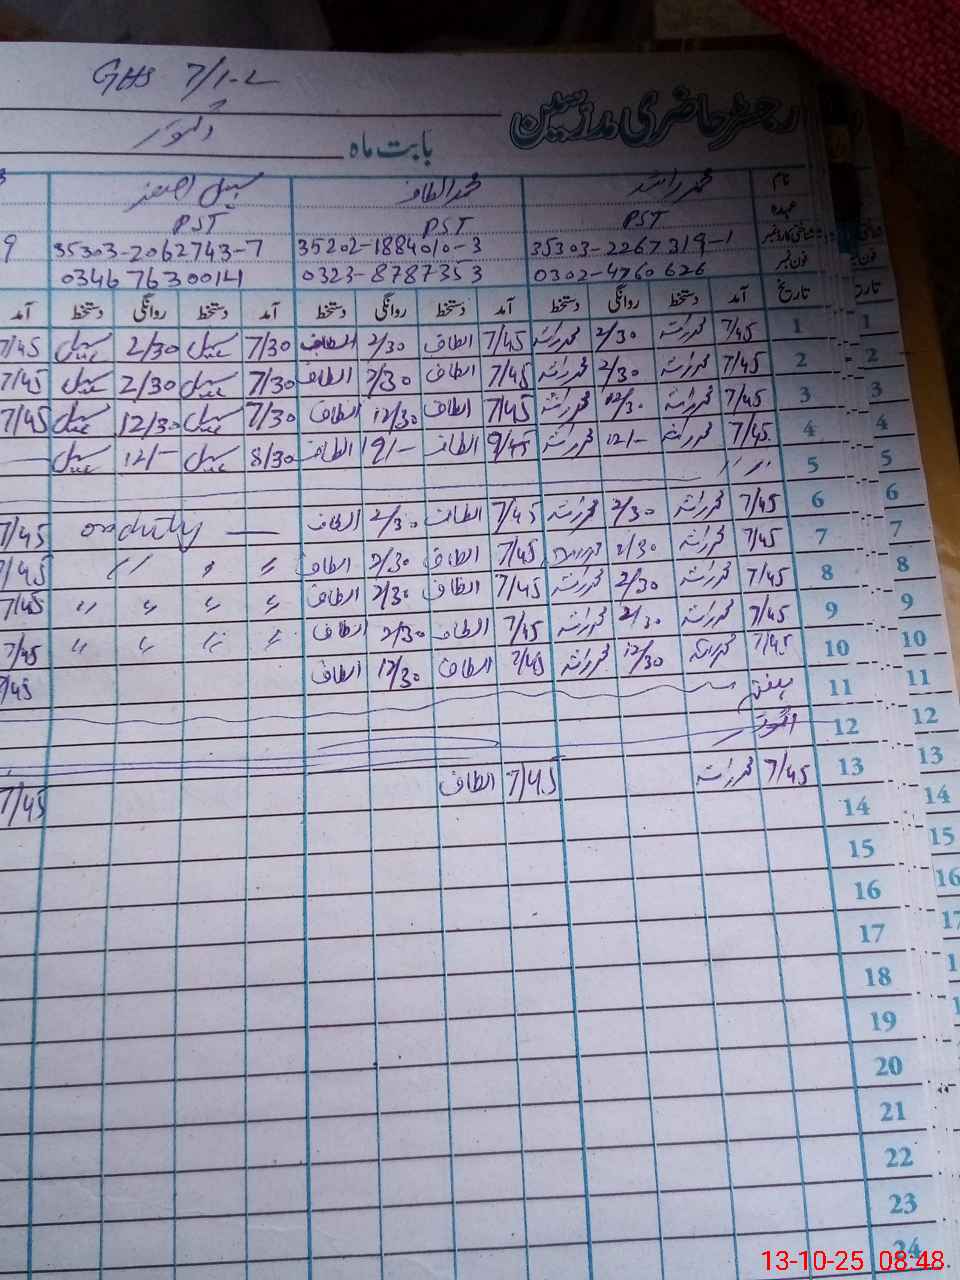 GHS 7/1-L
رجسٹر حاضری مدرسین
بابت ماہ اکتوبر
نام محمد راشد محمد الطاف
عہدہ PST PST PST
شناختی کارڈ نمبر 35303-2267319-1 35202-1884010-3 35303-2062743-7 9
فون نمبر 0302-4760626 0323-8787353 0346 7630014
تاریخ آمد دستخط روانگی دستخط آمد دستخط روانگی دستخط آمد دستخط روانگی دستخط آمد
1 7/45 محمد راشد 2/30 محمد راشد 7/45 الطاف 2/30 الطاف 7/30 سہیل 2/30 سہیل 7/45
2 7/45 محمد راشد 2/30 محمد راشد 7/45 الطاف 2/30 الطاف 7/30 سہیل 2/30 سہیل 7/45
3 7/45 محمد راشد 12/30 محمد راشد 7/45 الطاف 12/30 الطاف 7/30 سہیل 12/30 سہیل 7/45
4 7/45 محمد راشد 12/- محمد راشد 9/45 الطاف الطاف 8/30 سہیل 12/- سہیل
5
6 7/45 محمد راشد 2/30 محمد راشد 7/45 الطاف 2/30 الطاف — on duty 7/45
7 7/45 محمد راشد 2/30 محمد راشد 7/45 الطاف 2/30 الطاف 〃 〃 〃 7/45
8 7/45 محمد راشد 2/30 محمد راشد 7/45 الطاف 2/30 الطاف 〃 〃 〃 〃 7/45
9 7/45 محمد راشد 2/30 محمد راشد 7/45 الطاف 2/30 الطاف 〃 〃 〃 〃 7/45
10 7/45 محمد راشد 12/30 محمد راشد 7/45 الطاف 12/30 الطاف 7/45
11 ہفتہ
12 اتوار
13 7/45 محمد راشد 7/45 الطاف 7/45
14
15
16
17
18
19
20
21
22
23
24
13-10-25 08:48